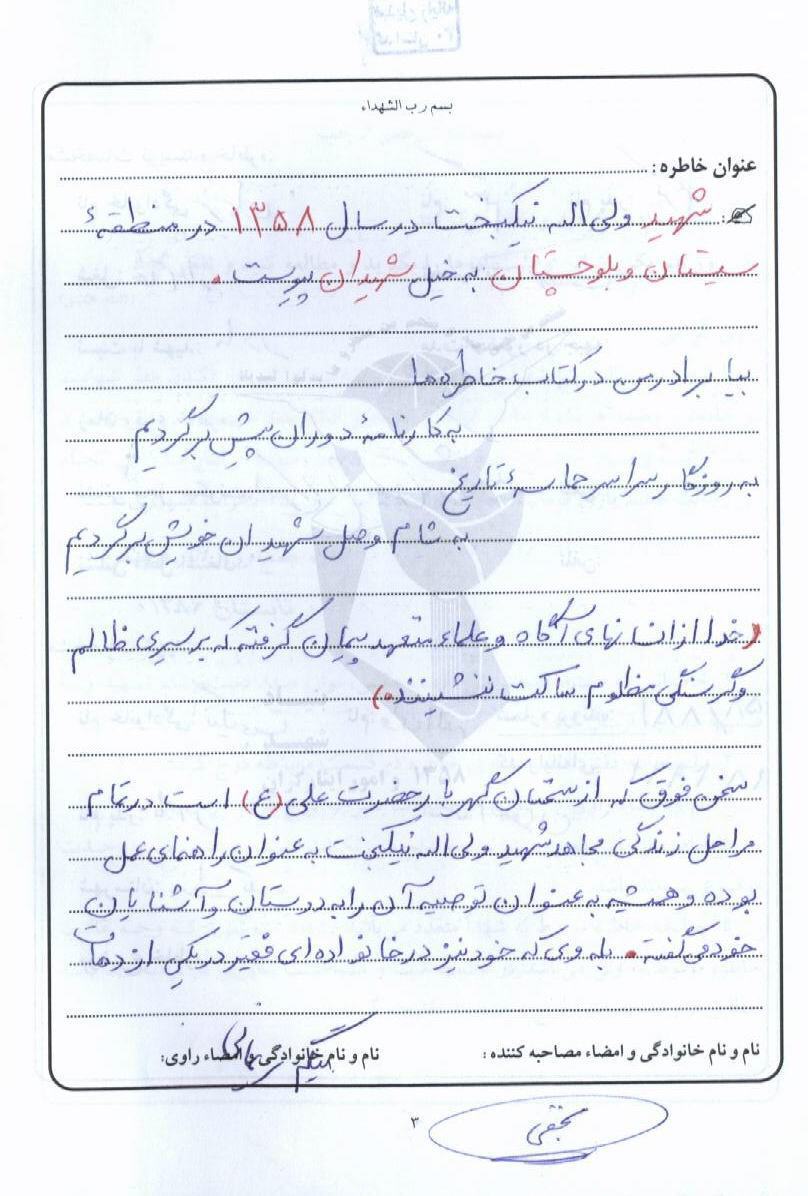 بسم رب الشهداء
عنوان خاطره :
شهید ولی اله نیکبخت در سال ۱۳۵۸ در منطقهٔ
سیستان و بلوچستان به خیل شهیدان پیوست .
بیا برادر من در کتاب خاطره ها
به کارنامهٔ دوران پیش برگردیم
به روزگار سراسر حماسهٔ تاریخ
به شام وصل شهیدان خویش برگردیم
(خدا از انسانهای آگاه و علماء متعهد پیمان گرفته که بر سیری ظالم
و گرسنگی مظلوم ساکت ننشینند.)
سخن فوق که از سخنان گهربار حضرت علی (ع) است در تمام
مراحل زندگی مجاهد شهید ولی اله نیکبخت به عنوان راهنمای عمل
بوده و همیشه به عنوان توصیه آن را به دوستان و آشنایان
خود می گفت . بله وی که خود نیز در خانواده ای فقیر در یکی از دهات
نام و نام خانوادگی و امضاء مصاحبه کننده :
نام و نام خانوادگی و امضاء راوی:
۳